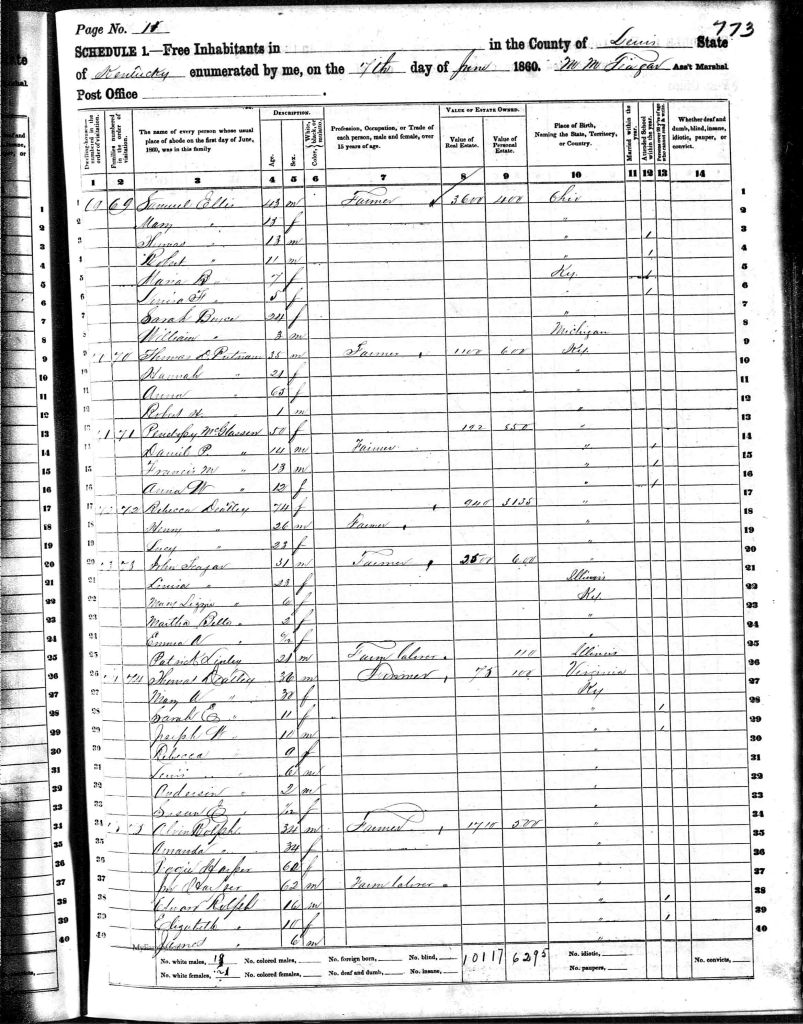 773
Page No. 11
SCHEDULE 1.—Free Inhabitants in in the County of Lewis State
of Kentucky enumerated by me, on the 7th day of June 1860. M M Ass't Marshal
Post Office
Dwelling-houses—numbered in the order of visitation.
Families numbered in the order of visitation.
The name of every person whose usual place of abode on the first day of June, 1860, was in this family
DESCRIPTION.
Age.
Sex.
Color, { White, black, or mulatto.
Profession, Occupation, or Trade of each person, male and female, over 15 years of age.
VALUE OF ESTATE OWNED.
Value of Real Estate.
Value of Personal Estate.
Place of Birth, Naming the State, Territory, or Country.
Married within the year.
Attended School within the year.
Whether deaf and dumb, blind, insane, idiotic, pauper, or convict.
1 2 3 4 5 6 7 8 9 10 11 12 13 14
1 69 Samuel Ellis 43 m Farmer 3600 400 Ohio 1
2 Mary " 13 f " 2
3 Thomas " 13 m " 1 3
4 Robert " 11 m " 1 4
5 Maria B " 7 f Ky. 1 5
6 Lucina F " 5 f " 1 6
7 Sarah 24 f " 7
8 William " 3 m Michigan 8
9 70 Thomas D Putnam 35 m Farmer 1100 600 Ky. 9
10 Hannah " 21 f " 10
11 Anna " 63 f " 11
12 Robert H " 1 m " 12
13 71 McGlassen 50 f 192 550 " 13
14 Daniel P " 14 m Farmer " 1 14
15 Francis M " 13 m " 1 15
16 Anna W " 12 f " 1 16
17 72 Rebecca 74 f 940 3135 " 17
18 Henry " 26 m Farmer " 18
19 Lucy " 23 f " 19
20 73 John 31 m Farmer 2500 600 " 20
21 Louisa " 23 f Illinois 21
22 Mary Lizzie " 6 f Ky. 22
23 Martha Belle " 2 f " 23
24 Emma A " f " 24
25 Patrick 21 m Farm laborer 110 Illinois 25
26 74 Thomas 36 m Farmer 75 100 Virginia 26
27 Mary A " 30 f Ky 27
28 Sarah E " 11 f " 1 28
29 Joseph W " 10 m " 1 29
30 Rebecca 9 f " 30
31 Lewis " 6 m " 31
32 Anderson " 2 m " 32
33 Susan E " f " 33
34 Alvin Rolph 34 m Farmer 1710 500 " 34
35 Amanda " 34 f " 35
36 Harper 60 f " 36
37 Harper 62 m Farm laborer " 37
38 Edward Rolph 16 m " 1 38
39 Elizabeth " 10 f " 1 39
40 James " 6 m " 40
No. white males, 19 No. colored males, No. foreign born, No. blind, 10117 6295 No. idiotic, No. convicts,
No. white females, 21 No. colored females, No. deaf and dumb, No. insane, No. paupers,